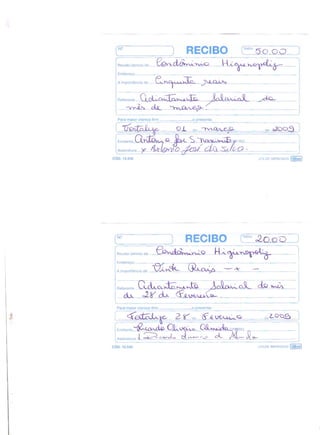 Nº RECIBO Valor 50,00
Recebi(emos) de Condôminio Higienopolis
Endereço
A importância de Cinquenta reais
Referente Adiantamento Salarial do
mês de março
Para maior clareza firm o presente
Fortaleza 01 de março de 2009
Emitente Antônio José S. Nascimento
Assinatura x Antonio José da Silva
Nº RECIBO Valor 20,00
Recebi(emos) de Condôminio Higienopolis
Endereço
A importância de Vinte Reais
Referente Adiantamento Salarial do mês
de 28 de Fevereiro
Para maior clareza firm o presente
Fortaleza 28 de Fevereiro de 2009
Emitente Ricardo Oliveira Almeida
Assinatura Ricardo